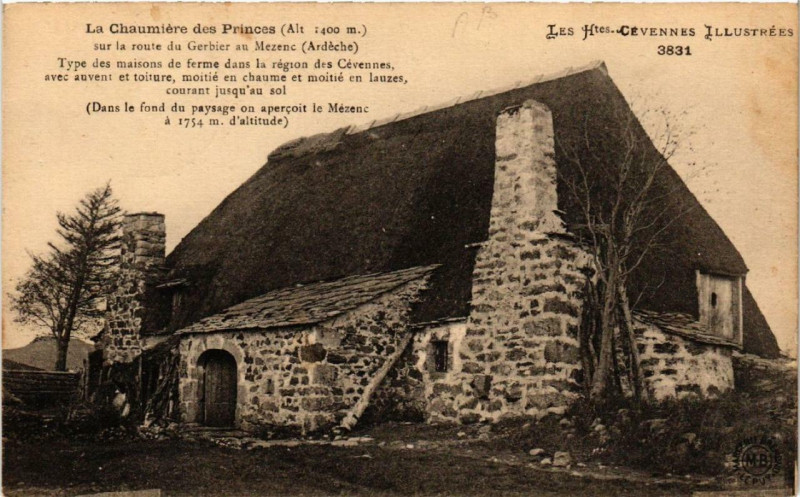 La Chaumière des Princes (Alt 1400 m.)
sur la route du Gerbier au Mezenc (Ardèche)
Type des maisons de ferme dans la région des Cévennes,
avec auvent et toiture, moitié en chaume et moitié en lauzes,
courant jusqu'au sol
(Dans le fond du paysage on aperçoit le Mézenc
à 1754 m. d'altitude)
Les Htes-Cévennes Illustrées
3831
MB